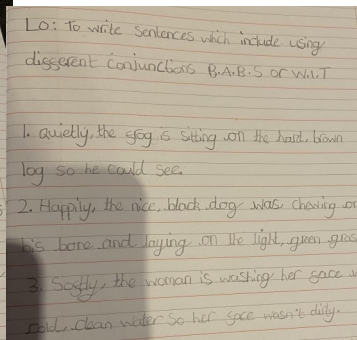 Lo: To write Sentences which include using
different Conjunctions B.A.B.S or W.I.T
1. quietly, the frog is sitting on the hard, brown
log so he could see.
2. Happily, the nice, black dog was chewing on
his bone and laying on the light, green gras
3. Softly, the woman is washing her face w
cold, clean water so her face wasn't dirty.